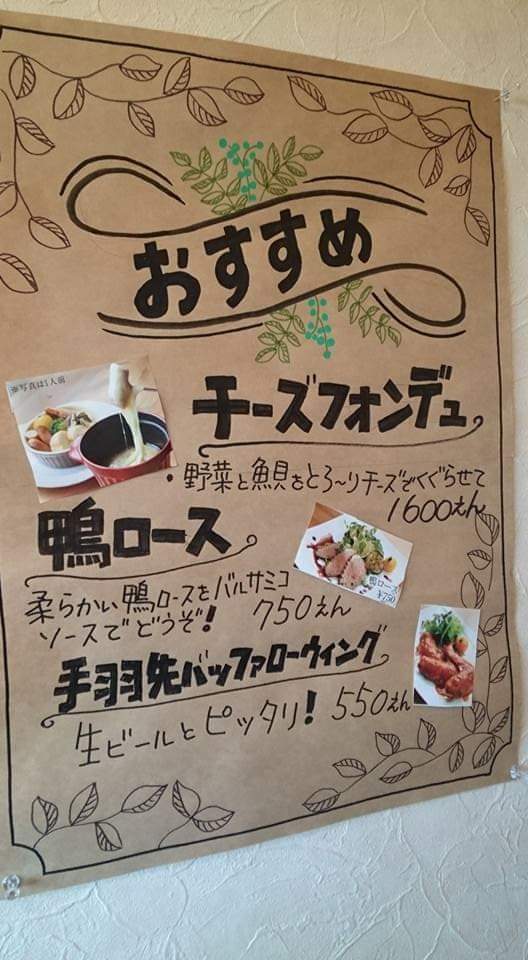 おすすめ
※写真は1人前
チーズフォンデュ
・野菜と魚貝をとろ～りチーズでくぐらせて
1600えん
鴨ロース
柔らかい鴨ロースをバルサミコ
ソースでどうぞ! 750えん
鴨ロース
¥750
手羽先バッファローウィング
生ビールとピッタリ! 550えん